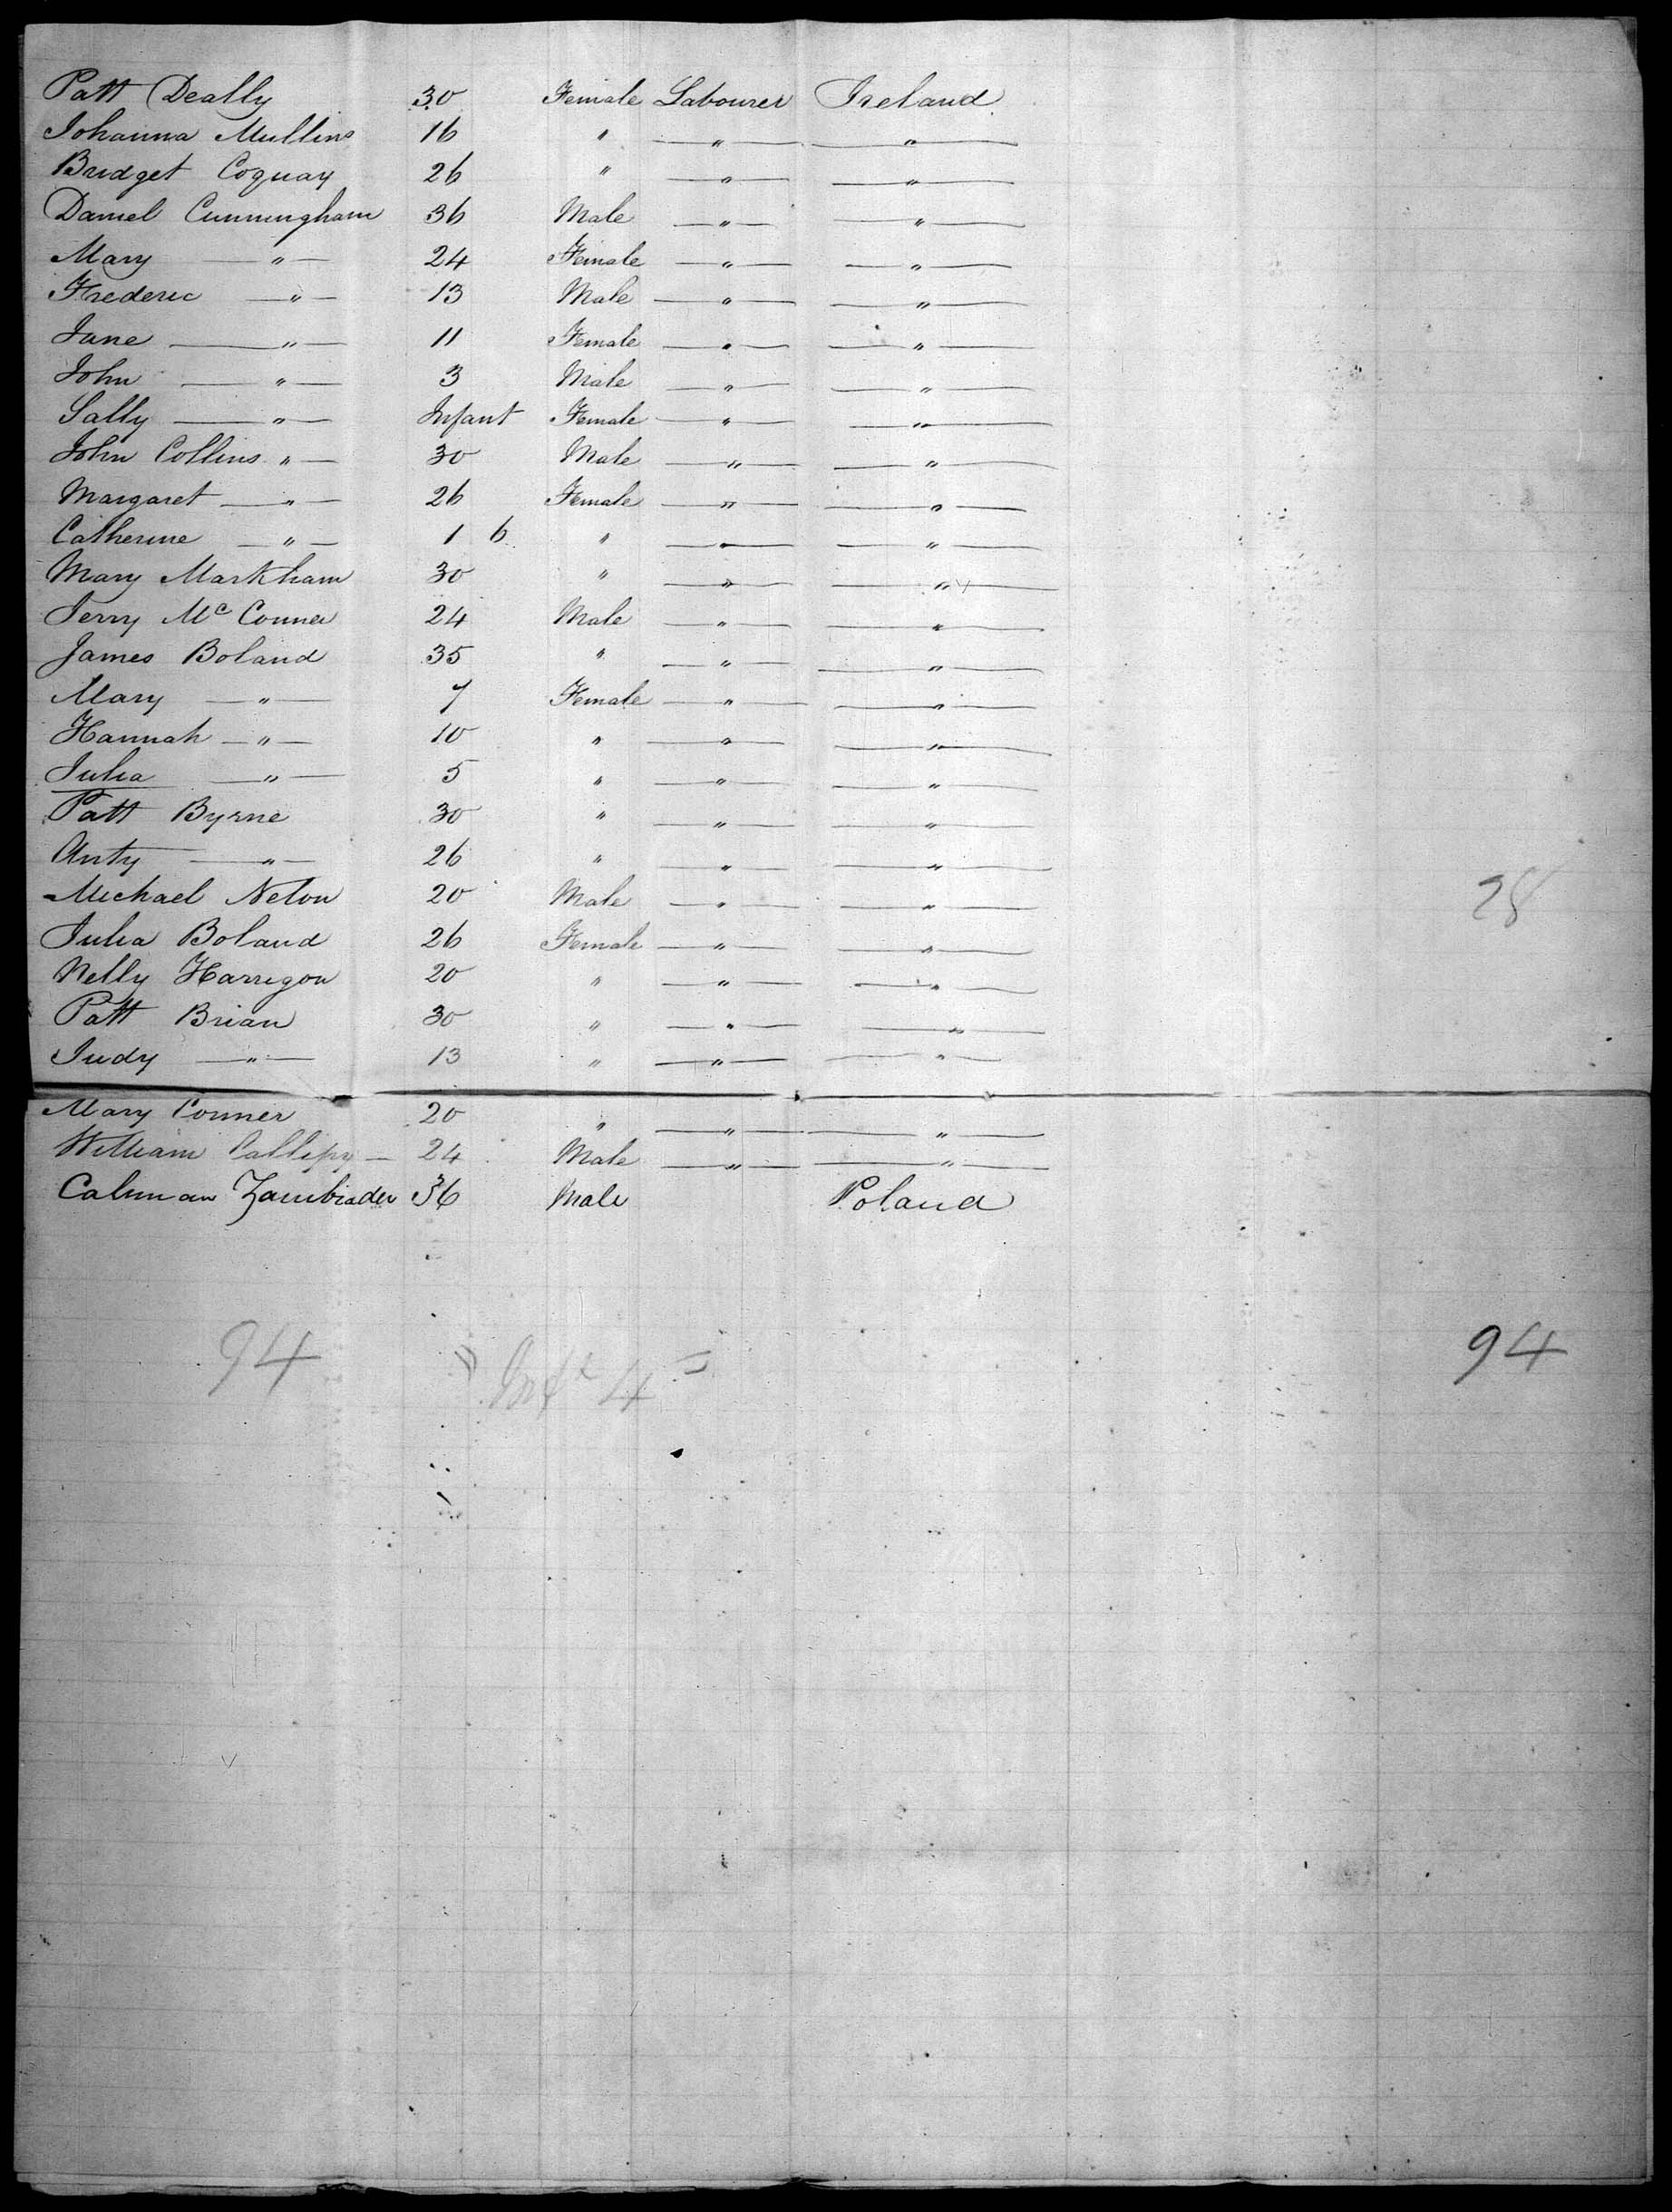 Patt Deally 30 Female Labourer Ireland
Johanna Mullins 16 " — " — — " —
Bridget Coquay 26 " — " — — " —
Daniel Cunningham 36 Male — " — — " —
Mary — " — 24 Female — " — — " —
Frederic — " — 13 Male — " — — " —
Jane — " — 11 Female — " — — " —
John — " — 3 Male — " — — " —
Sally — " — Infant Female — " — — " —
John Collins " — 30 Male — " — — " —
Margaret — " — 26 Female — " — — " —
Catherine — " — 1 6 " — " — — " —
Mary Markham 30 " — " — — " —
Jerry Mc Conner 24 Male — " — — " —
James Boland 35 " — " — — " —
Mary — " — 7 Female — " — — " —
Hannah — " — 10 " — " — — " —
Julia — " — 5 " — " — — " —
Patt Byrne 30 " — " — — " —
Anty — " — 26 " — " — — " —
Michael Nelon 20 Male — " — — " —
28
Julia Boland 26 Female — " — — " —
Nelly Harrigon 20 " — " — — " —
Patt Brian 30 " — " — — " —
Judy — " — 13 " — " — — " —
Mary Conner 20 " — " — — " —
William — 24 Male — " — — " —
Calman 36 Male Poland
94 94
4